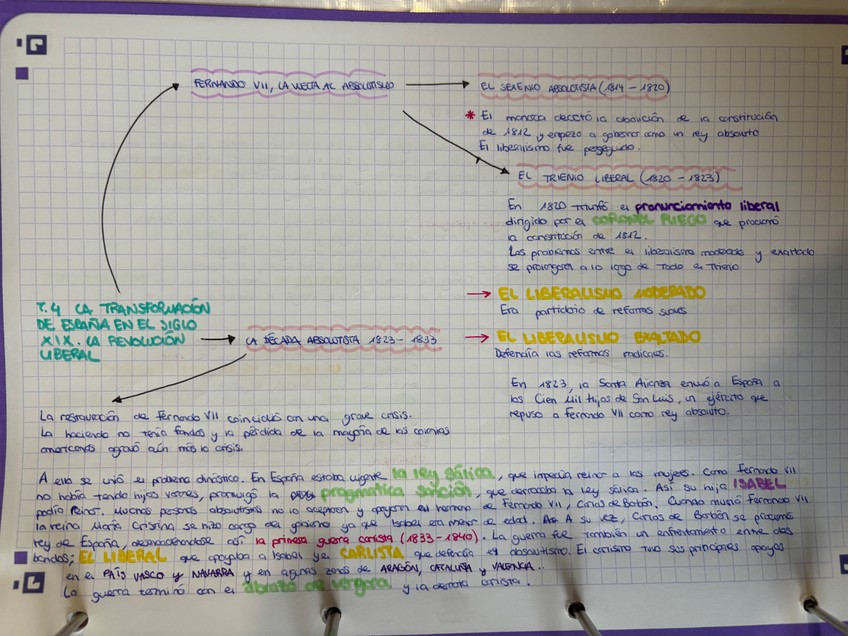 FERNANDO VII, LA VUELTA AL ABSOLUTISMO
EL SEXENIO ABSOLUTISTA (1814 - 1820)
* El monarca decretó la abolición de la constitución
de 1812, y empezó a gobernar como un rey absoluto
El liberalismo fue perseguido.
EL TRIENIO LIBERAL (1820 - 1823)
En 1820 triunfó el pronunciamiento liberal
dirigido por el CORONEL RIEGO que proclamó
la constitución de 1812.
Los problemas entre el liberalismo moderado y exaltado
se prolongará a lo largo de todo el Trienio
T.4 LA TRANSFORMACIÓN
DE ESPAÑA EN EL SIGLO
XIX. LA REVOLUCIÓN
LIBERAL
LA DÉCADA ABSOLUTISTA 1823 - 1833
EL LIBERALISMO MODERADO
Era partidario de reformas suaves
EL LIBERALISMO EXALTADO
Defendía las reformas radicales.
En 1823, la Santa Alianza envió a España a
los Cien Mil Hijos de San Luis, un ejército que
repuso a Fernando VII como rey absoluto.
La restauración de Fernando VII coincidió con una grave crisis.
La hacienda no tenía fondos y la pérdida de la mayoría de las colonias
americanas agravó aún más la crisis.
A ello se unió el problema dinástico. En España estaba vigente la ley sálica, que impedía reinar a las mujeres. Como Fernando VII
no había tenido hijos varones, promulgó la pragmática sanción, que derrocaba la ley sálica. Así su hija ISABEL
podía reinar. Muchos absolutistas no lo aceptaron y apoyaron al hermano de Fernando VII, Carlos de Borbón. Cuando murió Fernando VII
la reina María Cristina se hizo cargo del gobierno ya que Isabel era menor de edad. A su vez, Carlos de Borbón se proclamó
rey de España, desencadenándose así la primera guerra carlista (1833-1840). La guerra fue también un enfrentamiento entre dos
bandos; EL LIBERAL que apoyaba a Isabel y el CARLISTA que defendía el absolutismo. El carlismo tuvo sus principales apoyos
en el PAÍS VASCO y NAVARRA y en algunas zonas de ARAGÓN, CATALUÑA y VALENCIA..
La guerra terminó con el abrazo de vergara y la derrota carlista.